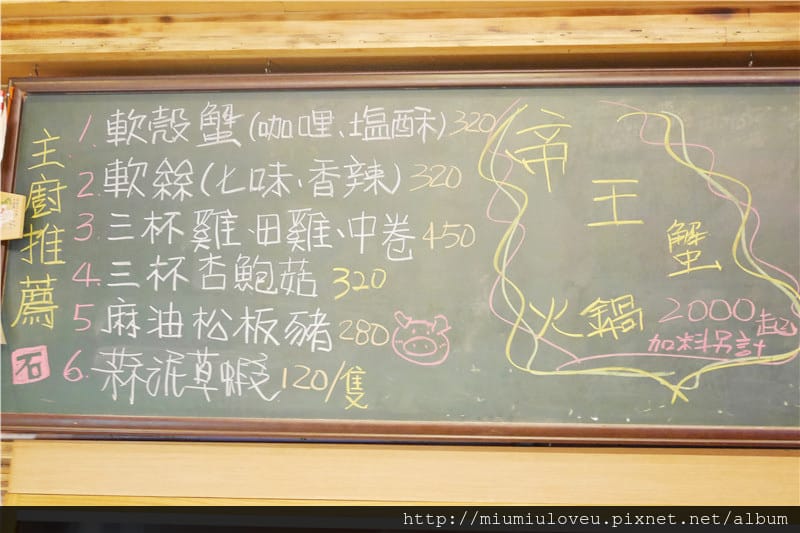 主廚推薦
石
1. 軟殼蟹(咖哩、塩酥)320
2. 軟絲(七味、香辣)320
3. 三杯雞、田雞、中卷450
4. 三杯杏鮑菇320
5. 麻油松板豬280
6. 蒜泥草蝦120/隻
帝王蟹
火鍋 2000起
加料另計
http://miumiuloveu.pixnet.net/album